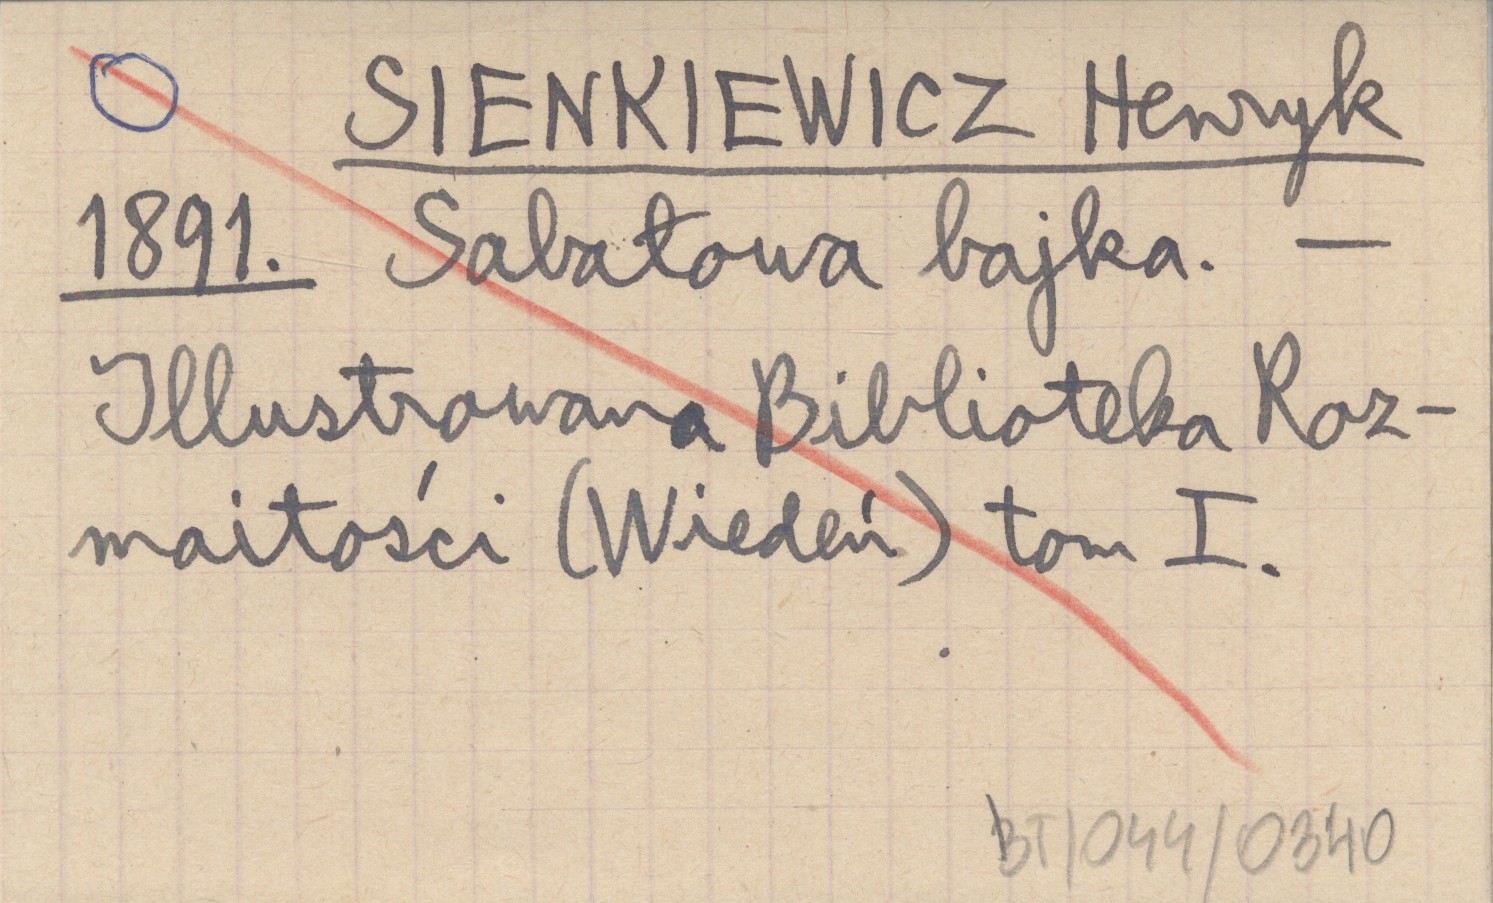 SIENKIEWICZ Henryk
1891. Sabałowa bajka. —
Illustrowana Biblioteka Roz-
maitości (Wiedeń) tom I.
BT/044/0340